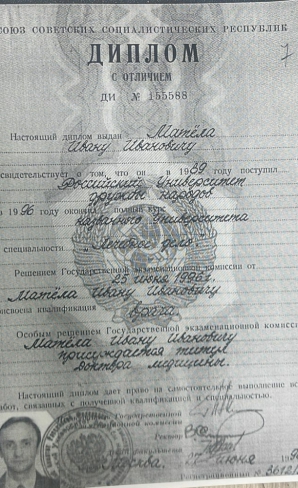 СОЮЗ СОВЕТСКИХ СОЦИАЛИСТИЧЕСКИХ РЕСПУБЛИК
ДИПЛОМ
С ОТЛИЧИЕМ
ДИ № 155588
7
Настоящий диплом выдан Матёла
Ивану Ивановичу
свидетельствует о том, что он в 1989 году поступил
Российский Университет
дружбы народов
в 1996 году окончил полный курс
названного Университета
специальности "Лечебное дело".
Решением Государственной экзаменационной комиссии от
25 июня 1996 г.
Матёла Ивану Ивановичу
присвоена квалификация врача.
Особым решением Государственной экзаменационной комиссии
Матёла Ивану Ивановичу
присуждается титул
Доктора медицины.
Настоящий диплом дает право на самостоятельное выполнение
работ, связанных с полученной квалификацией и специальностью.
Государственной
Ректор
Москва. июня
Регистрационный №